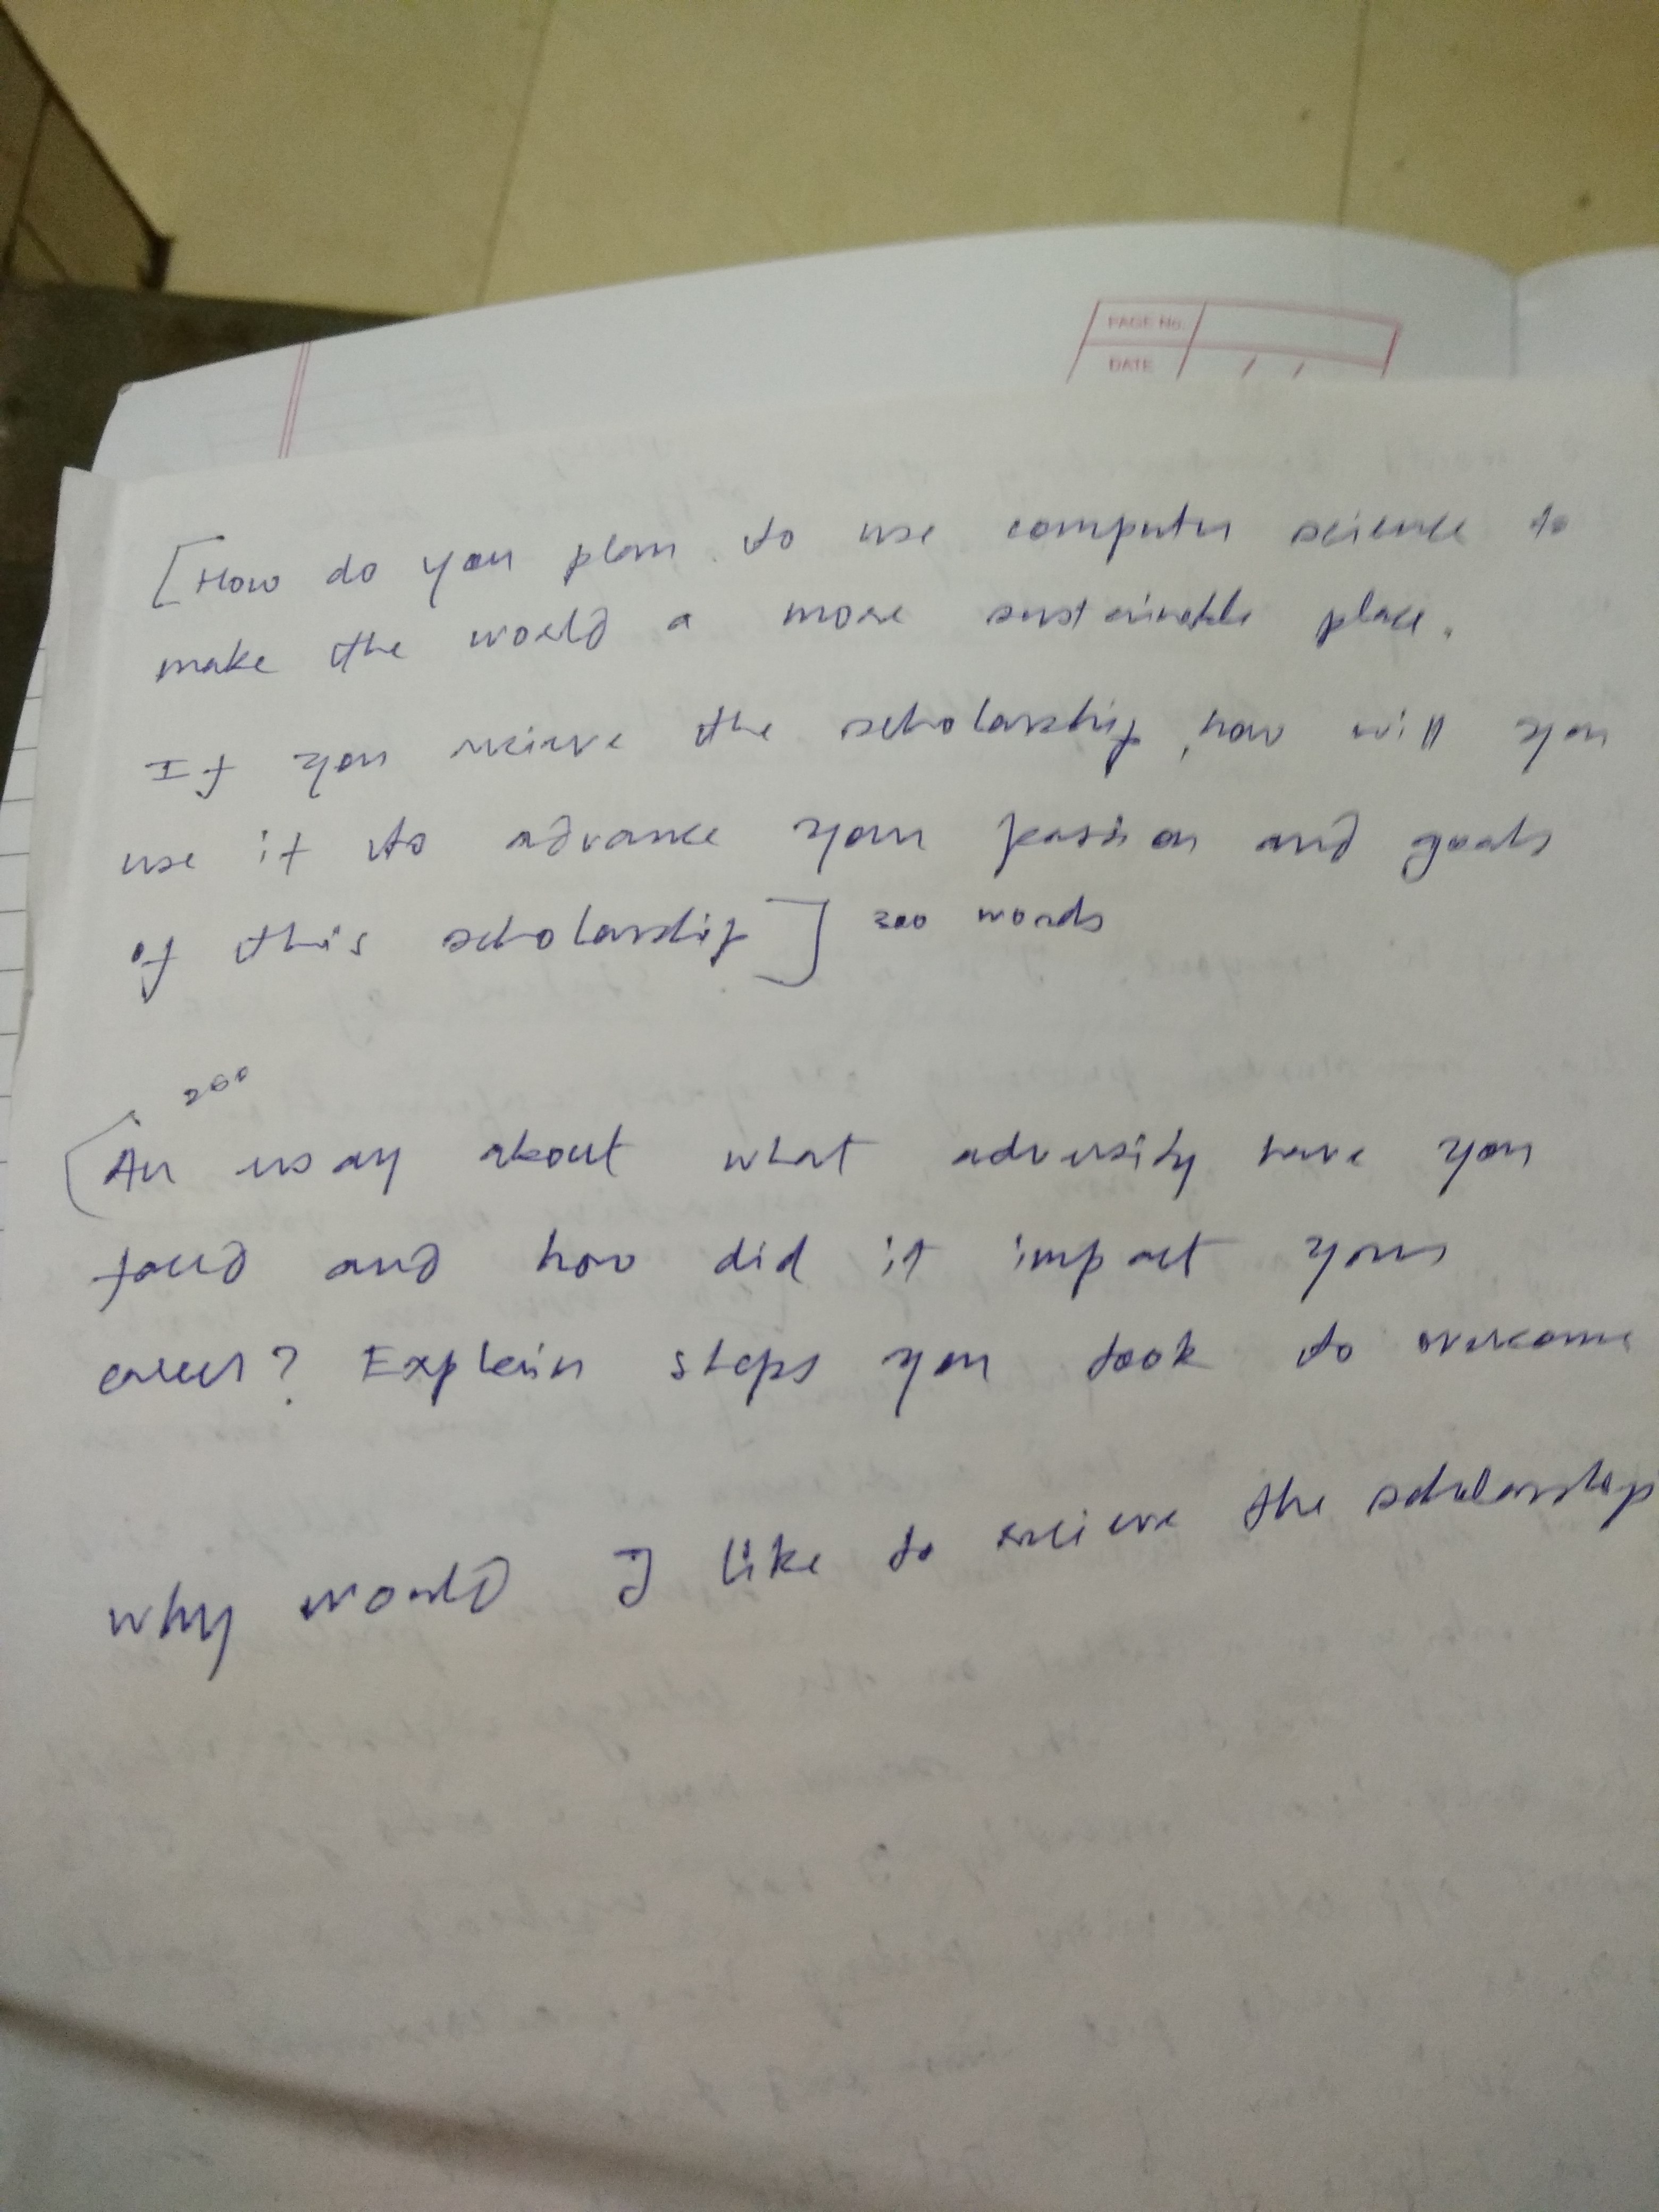 PAGE No.
DATE / /
[How do you plan to use computer science to
make the world a more sustainable place.
If you recieve the scholarship, how will you
use it to advance your passion and goals
of this scholarship] 300 words
200
[An essay about what adversity have you
faced and how did it impact your
career? Explain steps you took to overcome
why would I like to recieve the scholarship